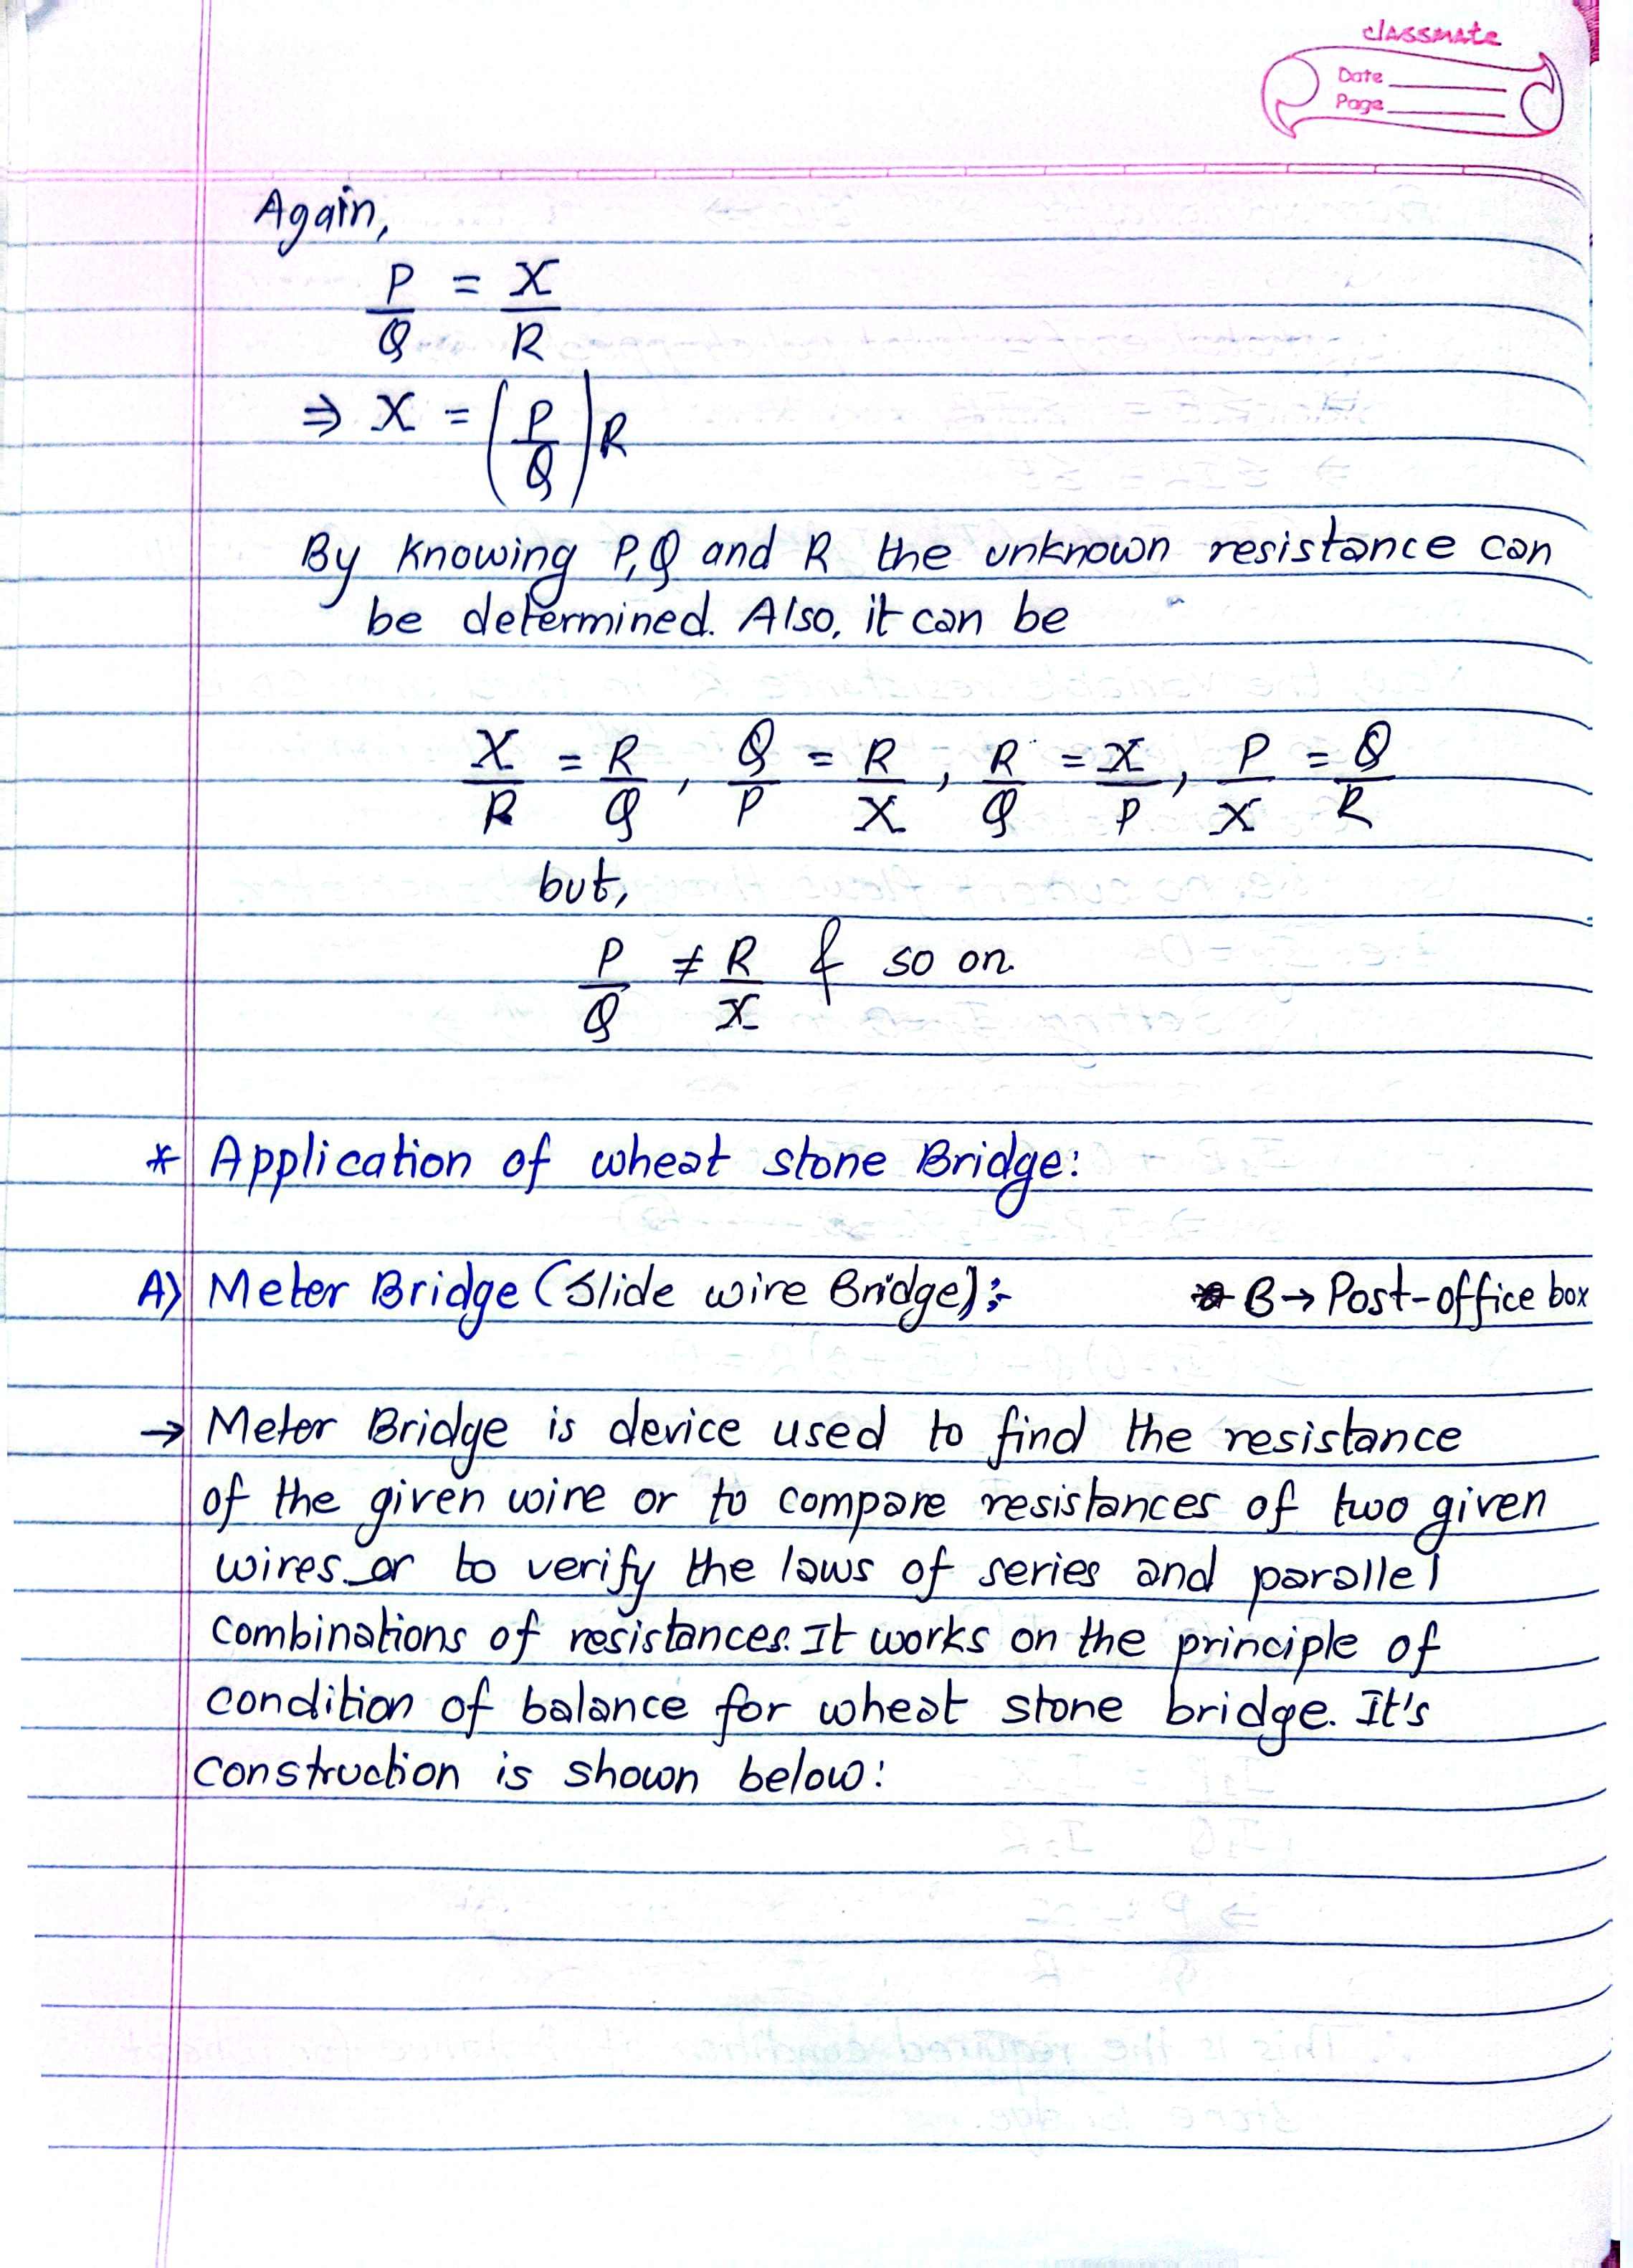 classmate
Date
Page
Again,
P/Q = X/R
⇒ X = (P/Q)R
By knowing P,Q and R the unknown resistance can
be determined. Also, it can be
X/R = R/Q , Q/P = R/X , R/Q = X/P , P/X = Q/R
but,
P/Q ≠ R/X & so on.
* Application of wheat stone Bridge:
A) Meter Bridge (Slide wire Bridge):- B→ Post-office box
→ Meter Bridge is device used to find the resistance
of the given wire or to compare resistances of two given
wires or to verify the laws of series and parallel
combinations of resistances. It works on the principle of
condition of balance for wheat stone bridge. It's
construction is shown below: